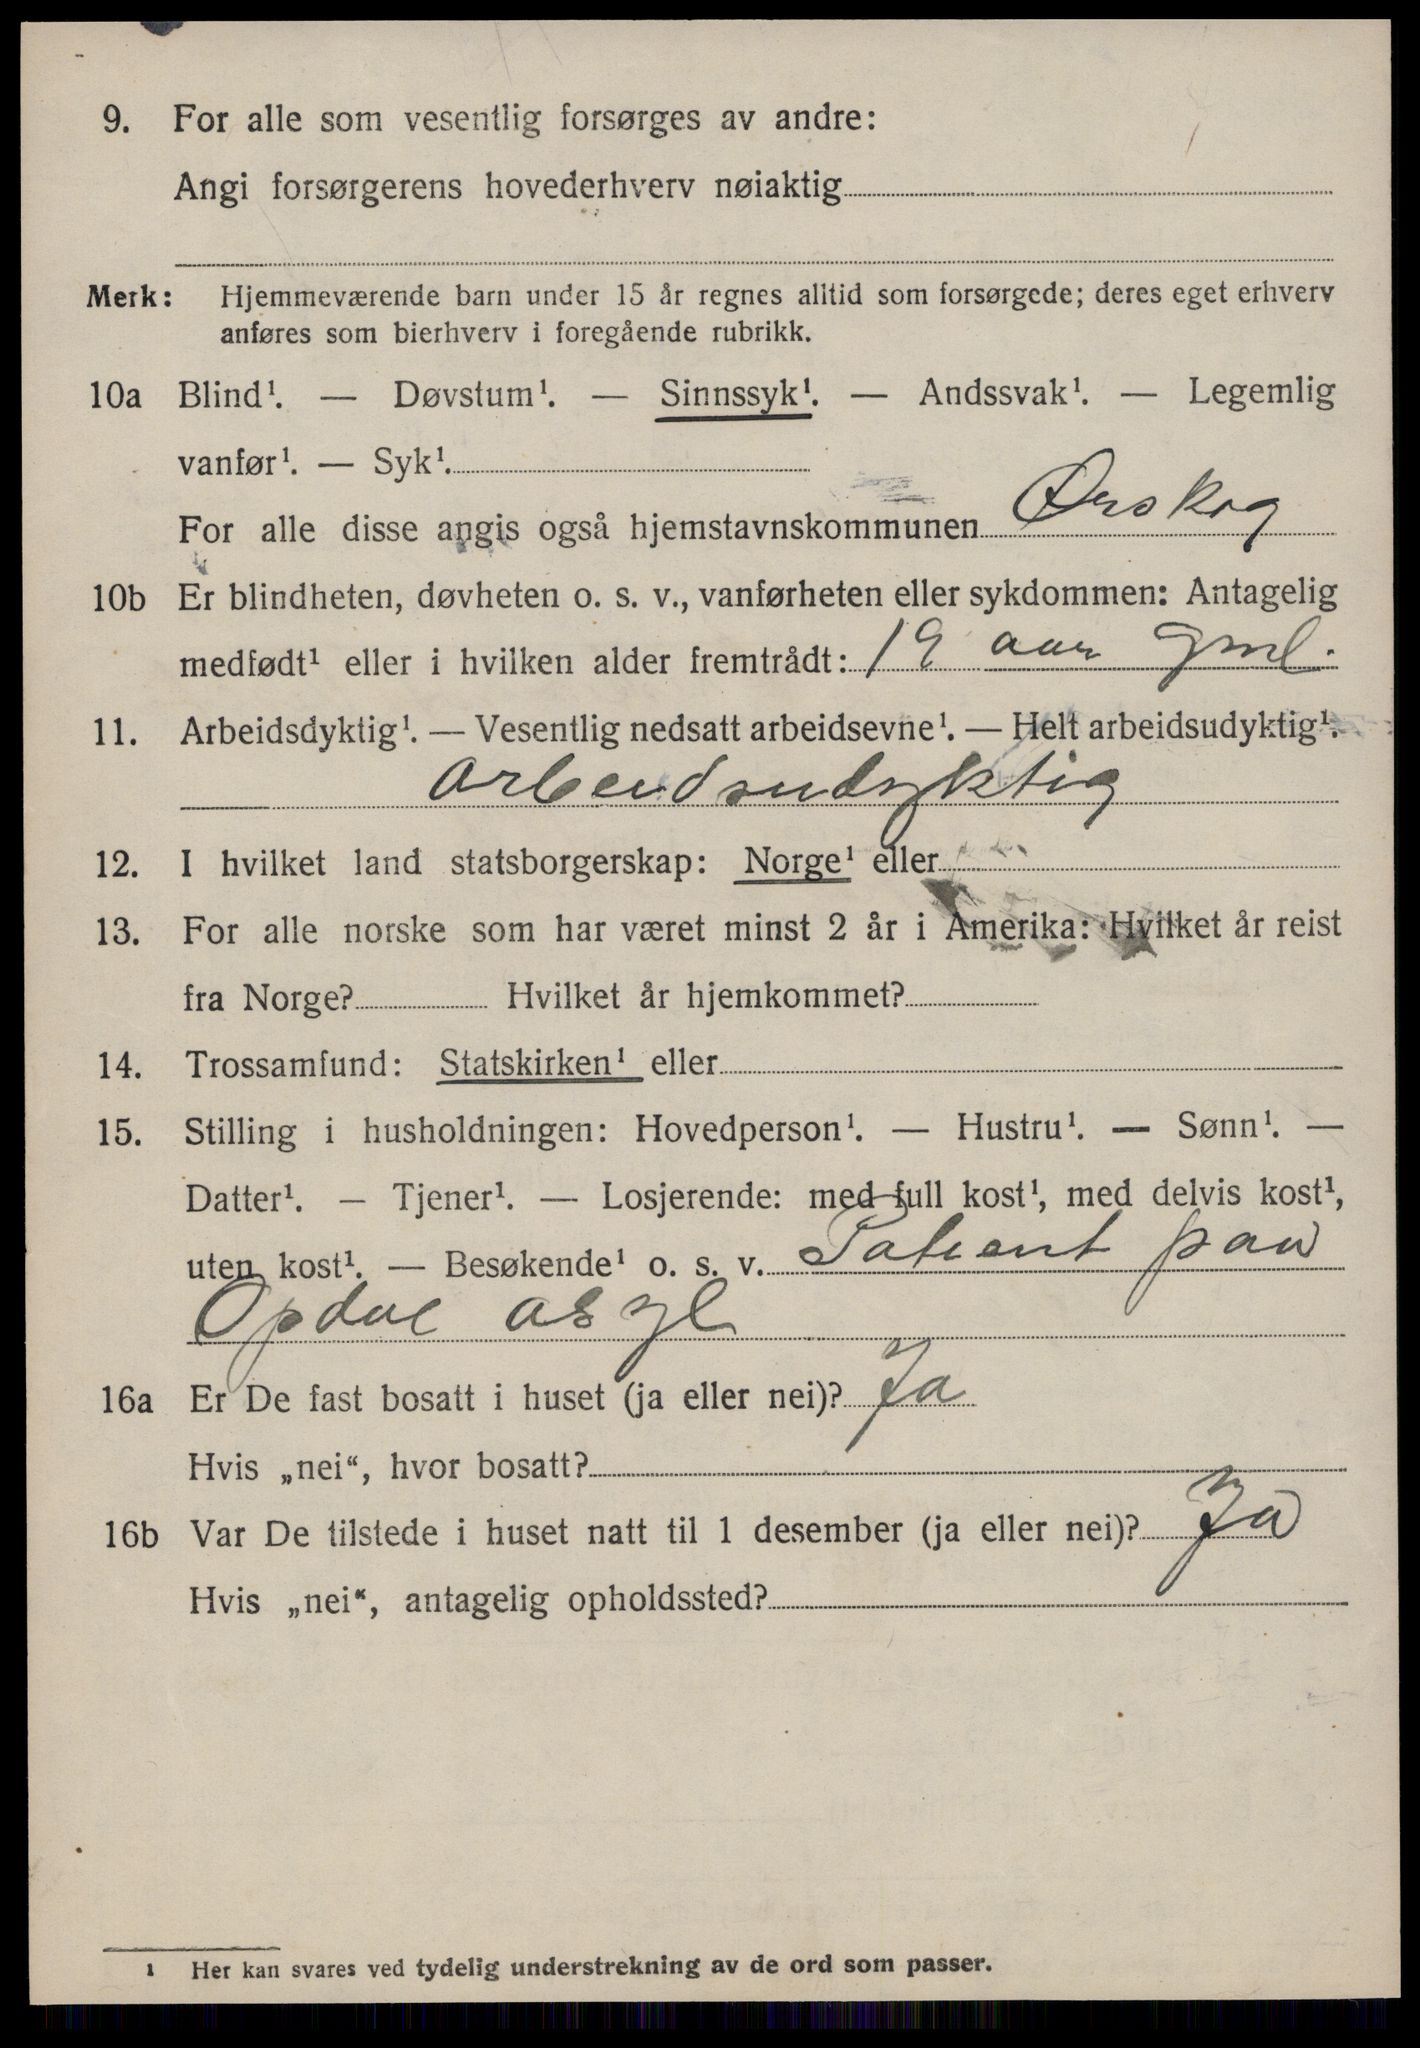 9. For alle som vesentlig forsørges av andre:
Angi forsørgerens hovederhverv nøiaktig
Merk: Hjemmeværende barn under 15 år regnes alltid som forsørgede; deres eget erhverv
anføres som bierhverv i foregående rubrikk.
10a Blind¹. — Døvstum¹. — Sinnssyk¹. — Andssvak¹. — Legemlig
vanfør¹. — Syk¹.
For alle disse angis også hjemstavnskommunen Ørskog
10b Er blindheten, døvheten o. s. v., vanførheten eller sykdommen: Antagelig
medfødt¹ eller i hvilken alder fremtrådt: 19 aar gml.
11. Arbeidsdyktig¹. — Vesentlig nedsatt arbeidsevne¹. — Helt arbeidsudyktig¹.
arbeidsudyktig
12. I hvilket land statsborgerskap: Norge¹ eller
13. For alle norske som har været minst 2 år i Amerika: Hvilket år reist
fra Norge? Hvilket år hjemkommet?
14. Trossamfund: Statskirken¹ eller
15. Stilling i husholdningen: Hovedperson¹. — Hustru¹. — Sønn¹. —
Datter¹. — Tjener¹. — Losjerende: med full kost¹, med delvis kost¹,
uten kost¹. — Besøkende¹ o. s. v. Patient paa
Opdøl asyl
16a Er De fast bosatt i huset (ja eller nei)? Ja
Hvis „nei“, hvor bosatt?
16b Var De tilstede i huset natt til 1 desember (ja eller nei)? Ja
Hvis „nei“, antagelig opholdssted?
1 Her kan svares ved tydelig understrekning av de ord som passer.